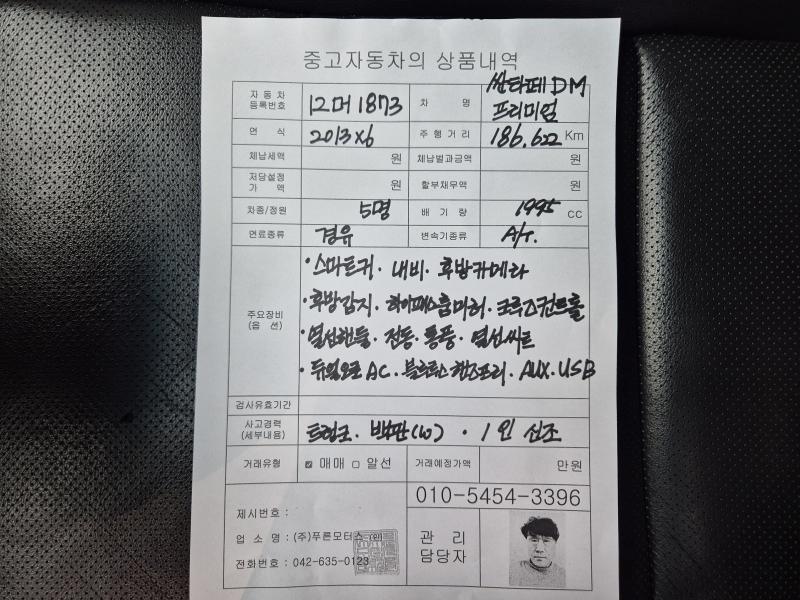 중고자동차의 상품내역
자동차등록번호 12머1873 차 명 싼타페DM 프리미엄
연 식 2013x6 주행거리 186,622 Km
체납세액 원 체납벌과금액 원
저당설정가 액 원 할부채무액 원
차종/정원 5명 배 기 량 1995 cc
연료종류 경유 변속기종류 A/T.
주요장비(옵 션)
·스마트키·내비·후방카메라
·후방감지·하이패스룸미러·크루즈컨트롤
·열선핸들·전동·통풍·열선씨트
·듀얼오토AC·블루투스핸즈프리·AUX·USB
검사유효기간
사고경력(세부내용) 트렁크·백판(W)·1인신조
거래유형 ☑ 매매 □ 알선 거래예정가액 만원
010-5454-3396
제시번호 :
업 소 명 : (주)푸른모터스 (인)
전화번호 : 042-635-0123
관 리
담당자